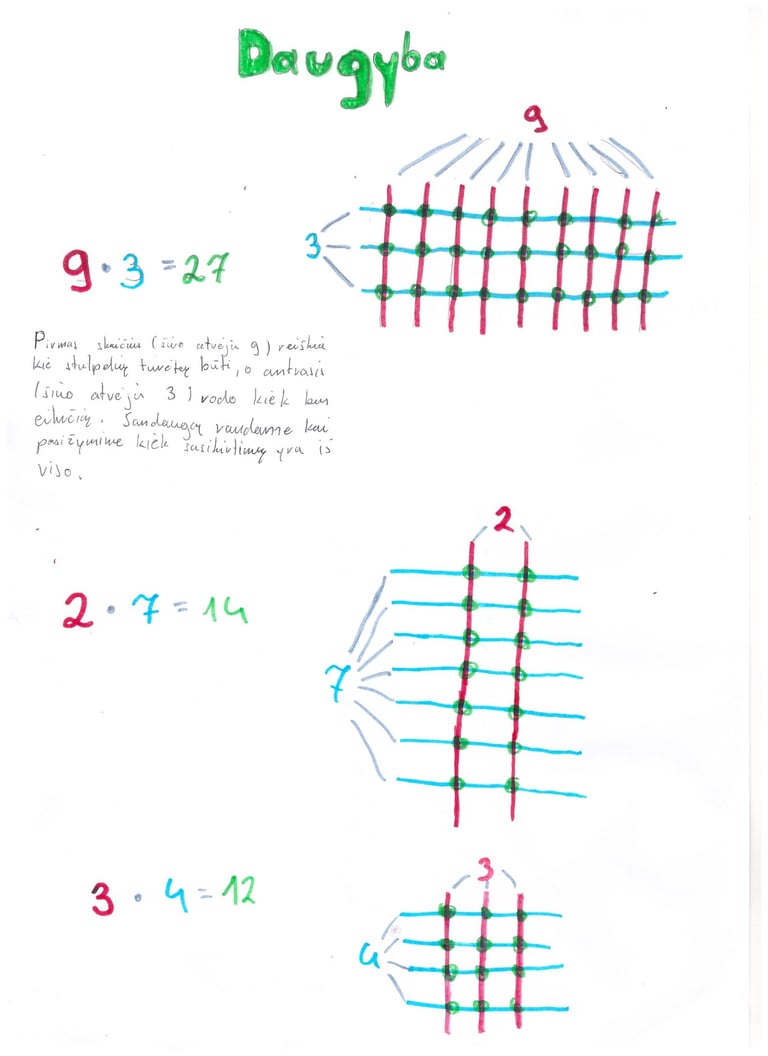 Daugyba
9
3
9 · 3 = 27
Pirmas skaičius (šiuo atveju 9) reiškia
kič stulpelių turėtų būti, o antrasis
(šiuo atveju 3) rodo kiek bus
eilučių. Sandaugą randame kai
pasižymime kiek susikirtimų yra iš
viso.
2
2 · 7 = 14
7
3
3 · 4 = 12
4